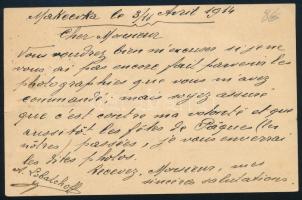 Makeevka le 3/16 Avril 1914
86
Cher Monsieur
Vous voudrez bien m'excuser si je ne
vous ai pas encore fait parvenir les
photographies que vous m'avez
commandé, mais soyez assuré
que c'est contre ma volonté et que
aussitôt les fêtes de Pâques (les
nôtres) passées, je vous enverrai
les dites photos.
Recevez, Monsieur, mes
sincères salutations